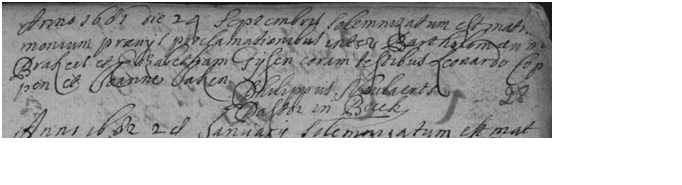 Anno 1681 die 29 Septembris solemnizatum est matri
monium prævijs proclamationibus inter Bartholomæum
Brassers et Barbaram Tyssen coram testibus Leonardo Cop
pen et Joanne Daken
Philippus
Pastor in Beeck
28
Anno 1682 28 Januarij solemnizatum est mat